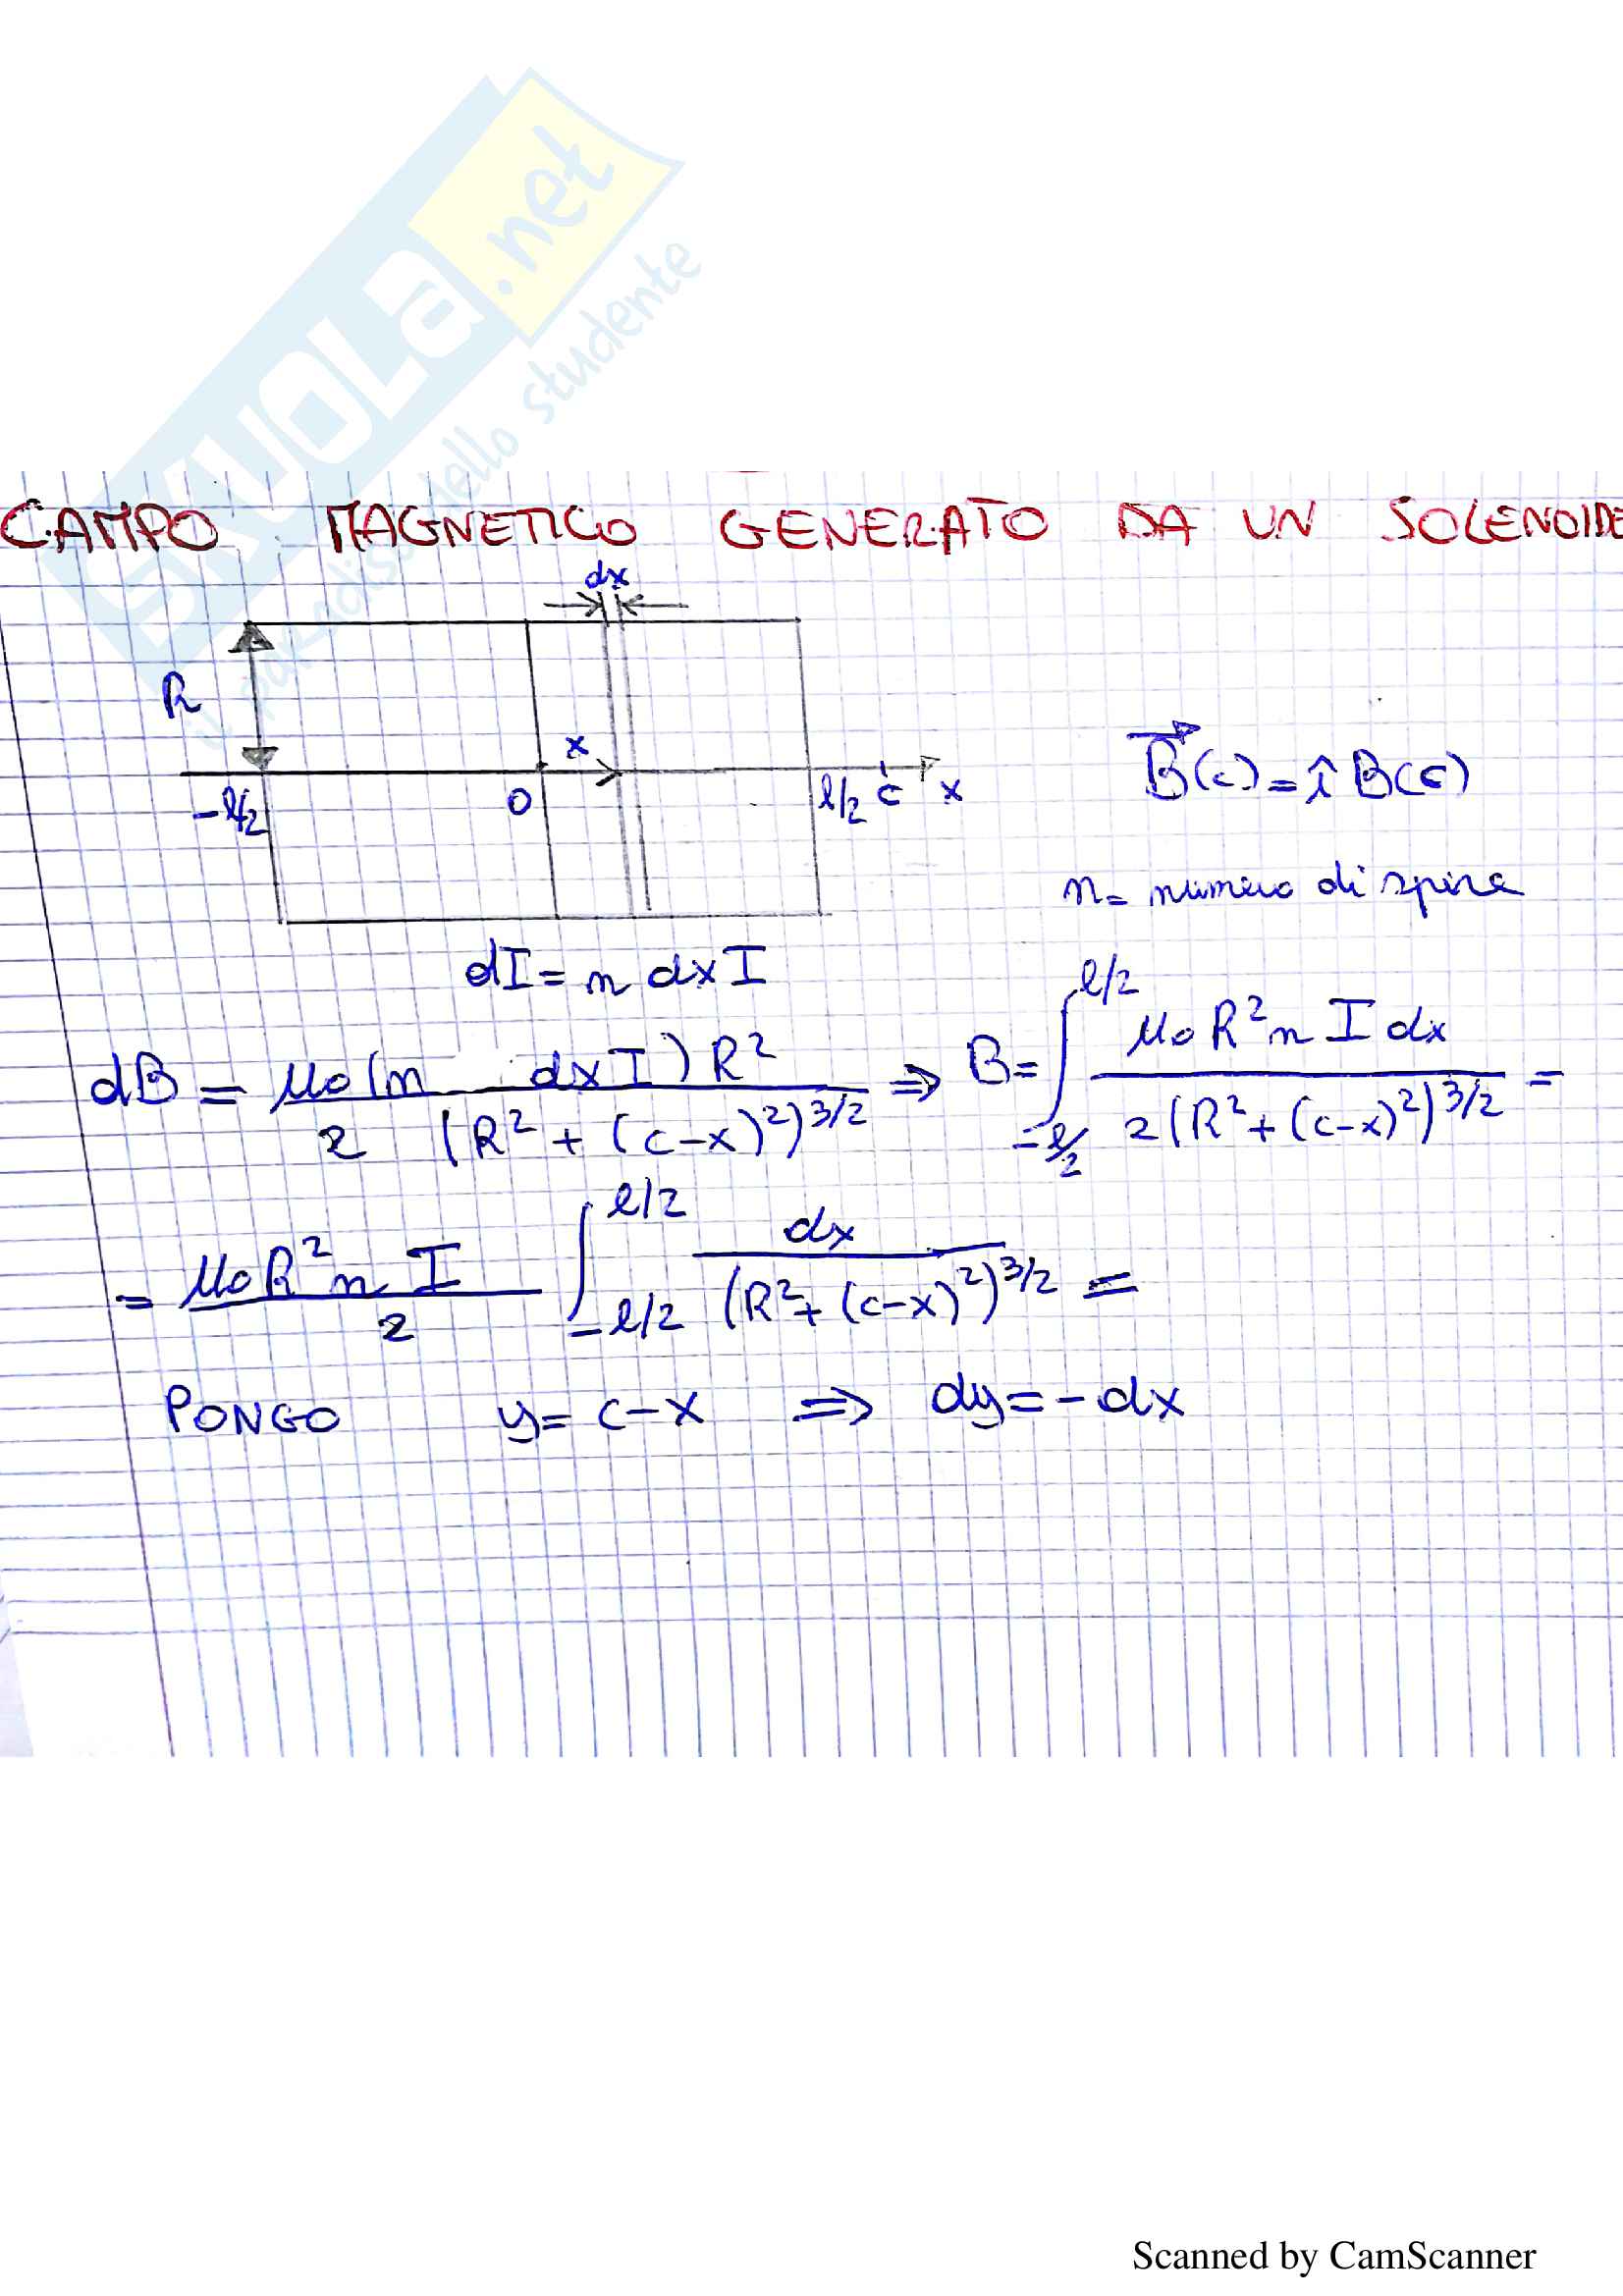 SKUOLA.net
il paradiso dello studente
CAMPO MAGNETICO GENERATO DA UN SOLENOIDE
dx
R
x
-l/2 0 l/2 c x
B⃗(c) = î B(c)
n = numero di spire
dI = n dx I
dB = μ0 (n dx I) R² / 2 (R² + (c-x)²)^3/2 ⇒ B = ∫_{-l/2}^{l/2} μ0 R² n I dx / 2 (R² + (c-x)²)^3/2 =
= μ0 R² n I / 2 ∫_{-l/2}^{l/2} dx / (R² + (c-x)²)^3/2 =
PONGO y = c-x ⇒ dy = -dx
Scanned by CamScanner